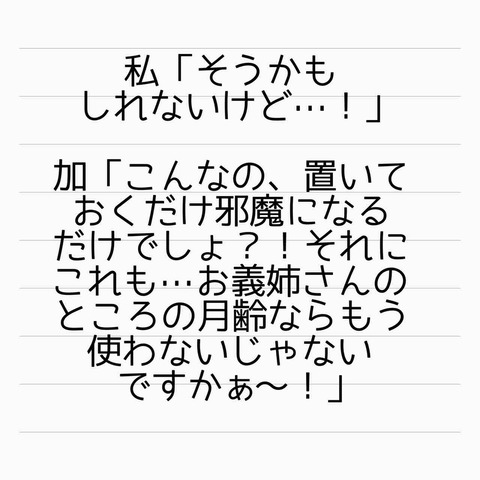 私「そうかも
しれないけど…！」
加「こんなの、置いて
おくだけ邪魔になる
だけでしょ？！それに
これも…お義姉さんの
ところの月齢ならもう
使わないじゃない
ですかぁ〜！」